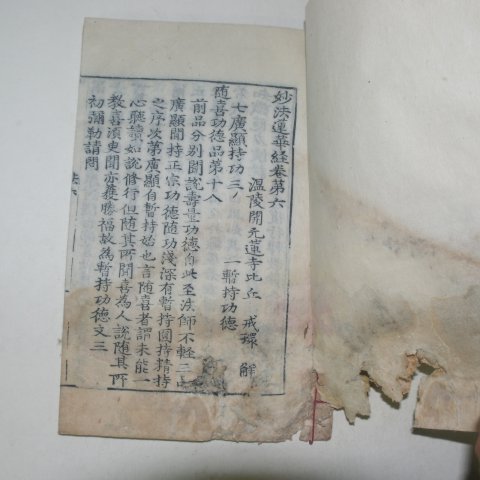 妙法蓮華経卷第六
溫陵開元蓮寺比丘 戒環 解
七廣顯持功三 一暫持功德
随喜功德品第十八
前品分别聞說壽量功德自此至法師不輕三品
廣顯聞持正宗功德随功淺深有暫持圓持精持
之序次第廣顯自暫持始也言随喜者謂未能一
心聽讀如說修行但随其所聞喜為人說随其所
教喜湏㬰聞亦𫉬勝福故為暫持功德文三
初彌勒請問